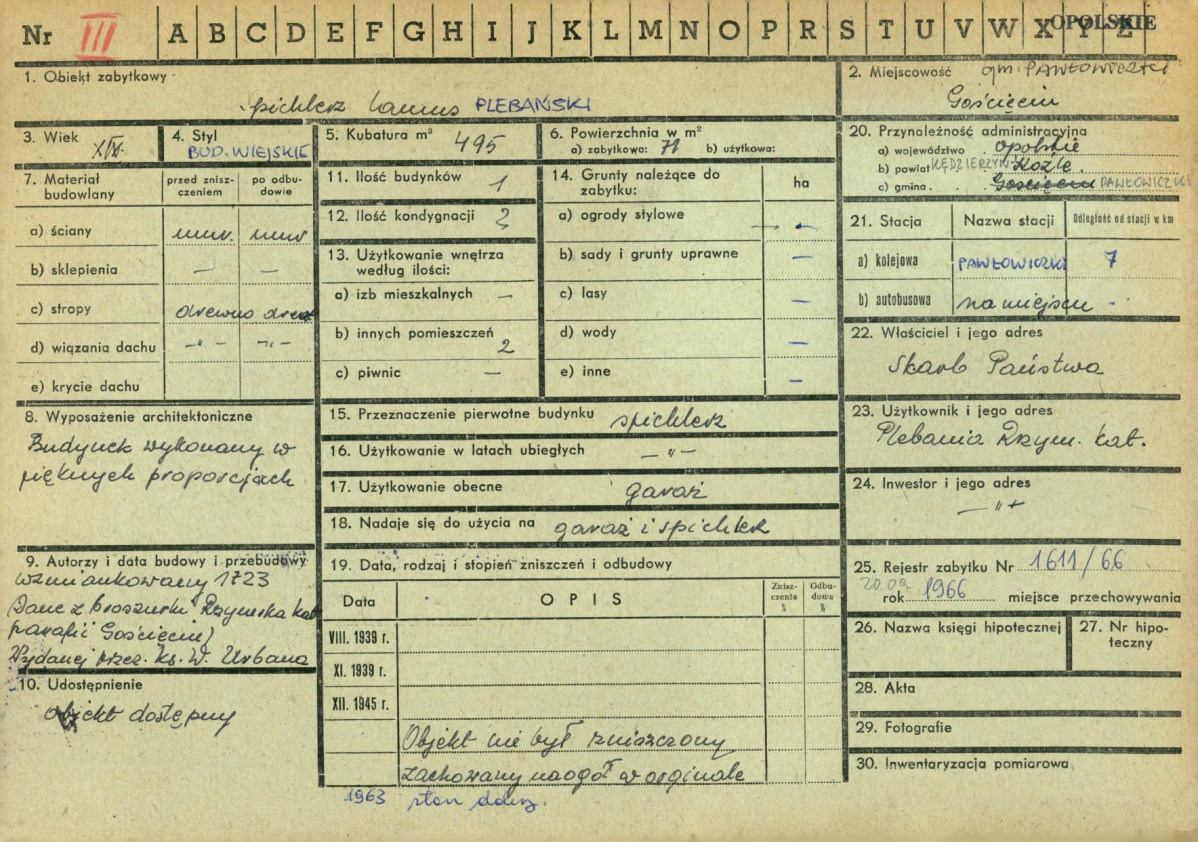 Nr III A B C D E F G H I J K L M N O P R S T U V W X Y Z
OPOLSKIE
1. Obiekt zabytkowy
spichlerz lamus PLEBAŃSKI
2. Miejscowość gm. PAWŁOWICZKI
Gościęcin
3. Wiek XIX.
4. Styl
BUD. WIEJSKIE
5. Kubatura m³ 495
6. Powierzchnia w m²
a) zabytkowa: 71 b) użytkowa:
7. Materiał budowlany
przed znisz-
czeniem
po odbu-
dowie
a) ściany murr. murr
b) sklepienia — —
c) stropy drewno drew
d) wiązania dachu -"- -"-
e) krycie dachu
8. Wyposażenie architektoniczne
Budynek wykonany w
pięknych proporcjach
9. Autorzy i data budowy i przebudowy
wzmiankowany 1723
Dane z broszurki Rzymska kat
parafii Gościęcin)
Wydanej przez. ks. W. Urbana
10. Udostępnienie
objekt dostępny
11. Ilość budynków 1
12. Ilość kondygnacji 2
13. Użytkowanie wnętrza
według ilości:
a) izb mieszkalnych —
b) innych pomieszczeń
2
c) piwnic —
14. Grunty należące do
zabytku:
ha
a) ogrody stylowe —
b) sady i grunty uprawne —
c) lasy —
d) wody —
e) inne —
15. Przeznaczenie pierwotne budynku spichlerz
16. Użytkowanie w latach ubiegłych —"—
17. Użytkowanie obecne garaż
18. Nadaje się do użycia na garaż i spichlerz
19. Data, rodzaj i stopień zniszczeń i odbudowy
Data
OPIS
Znisz-
czenia
%
Odbu-
dowa
%
VIII. 1939 r.
XI. 1939 r.
XII. 1945 r.
Objekt nie był zniszczony
zachowany naogół w orginale
1963 stan dobry.
20. Przynależność administracyjna
a) województwo opolskie
b) powiat KĘDZIERZYN Koźle
c) gmina Gościęcin PAWŁOWICZKI
21. Stacja
Nazwa stacji
Odległość od stacji w km
a) kolejowa PAWŁOWICZKI 7
b) autobusowa na miejscu -
22. Właściciel i jego adres
Skarb Państwa
23. Użytkownik i jego adres
Plebania Rzym. kat.
24. Inwestor i jego adres
—"—
25. Rejestr zabytku Nr 1611/66
20.09
rok 1966 miejsce przechowywania
26. Nazwa księgi hipotecznej
27. Nr hipo-
teczny
28. Akta
29. Fotografie
30. Inwentaryzacja pomiarowa